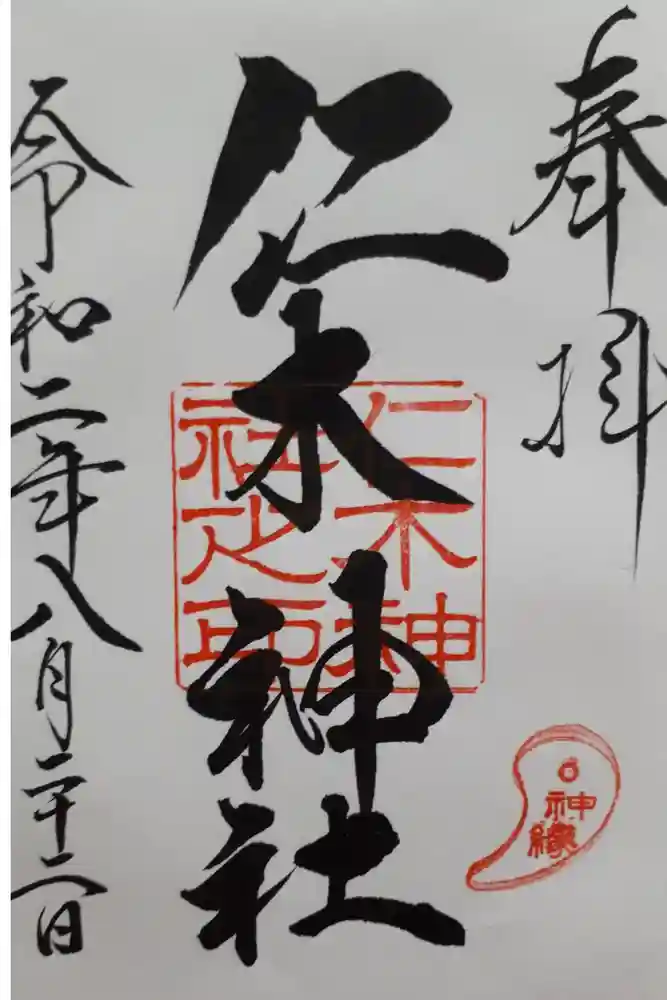 奉拝
仁木神社
仁木神
社之印
神
縁
令和二年八月二十二日